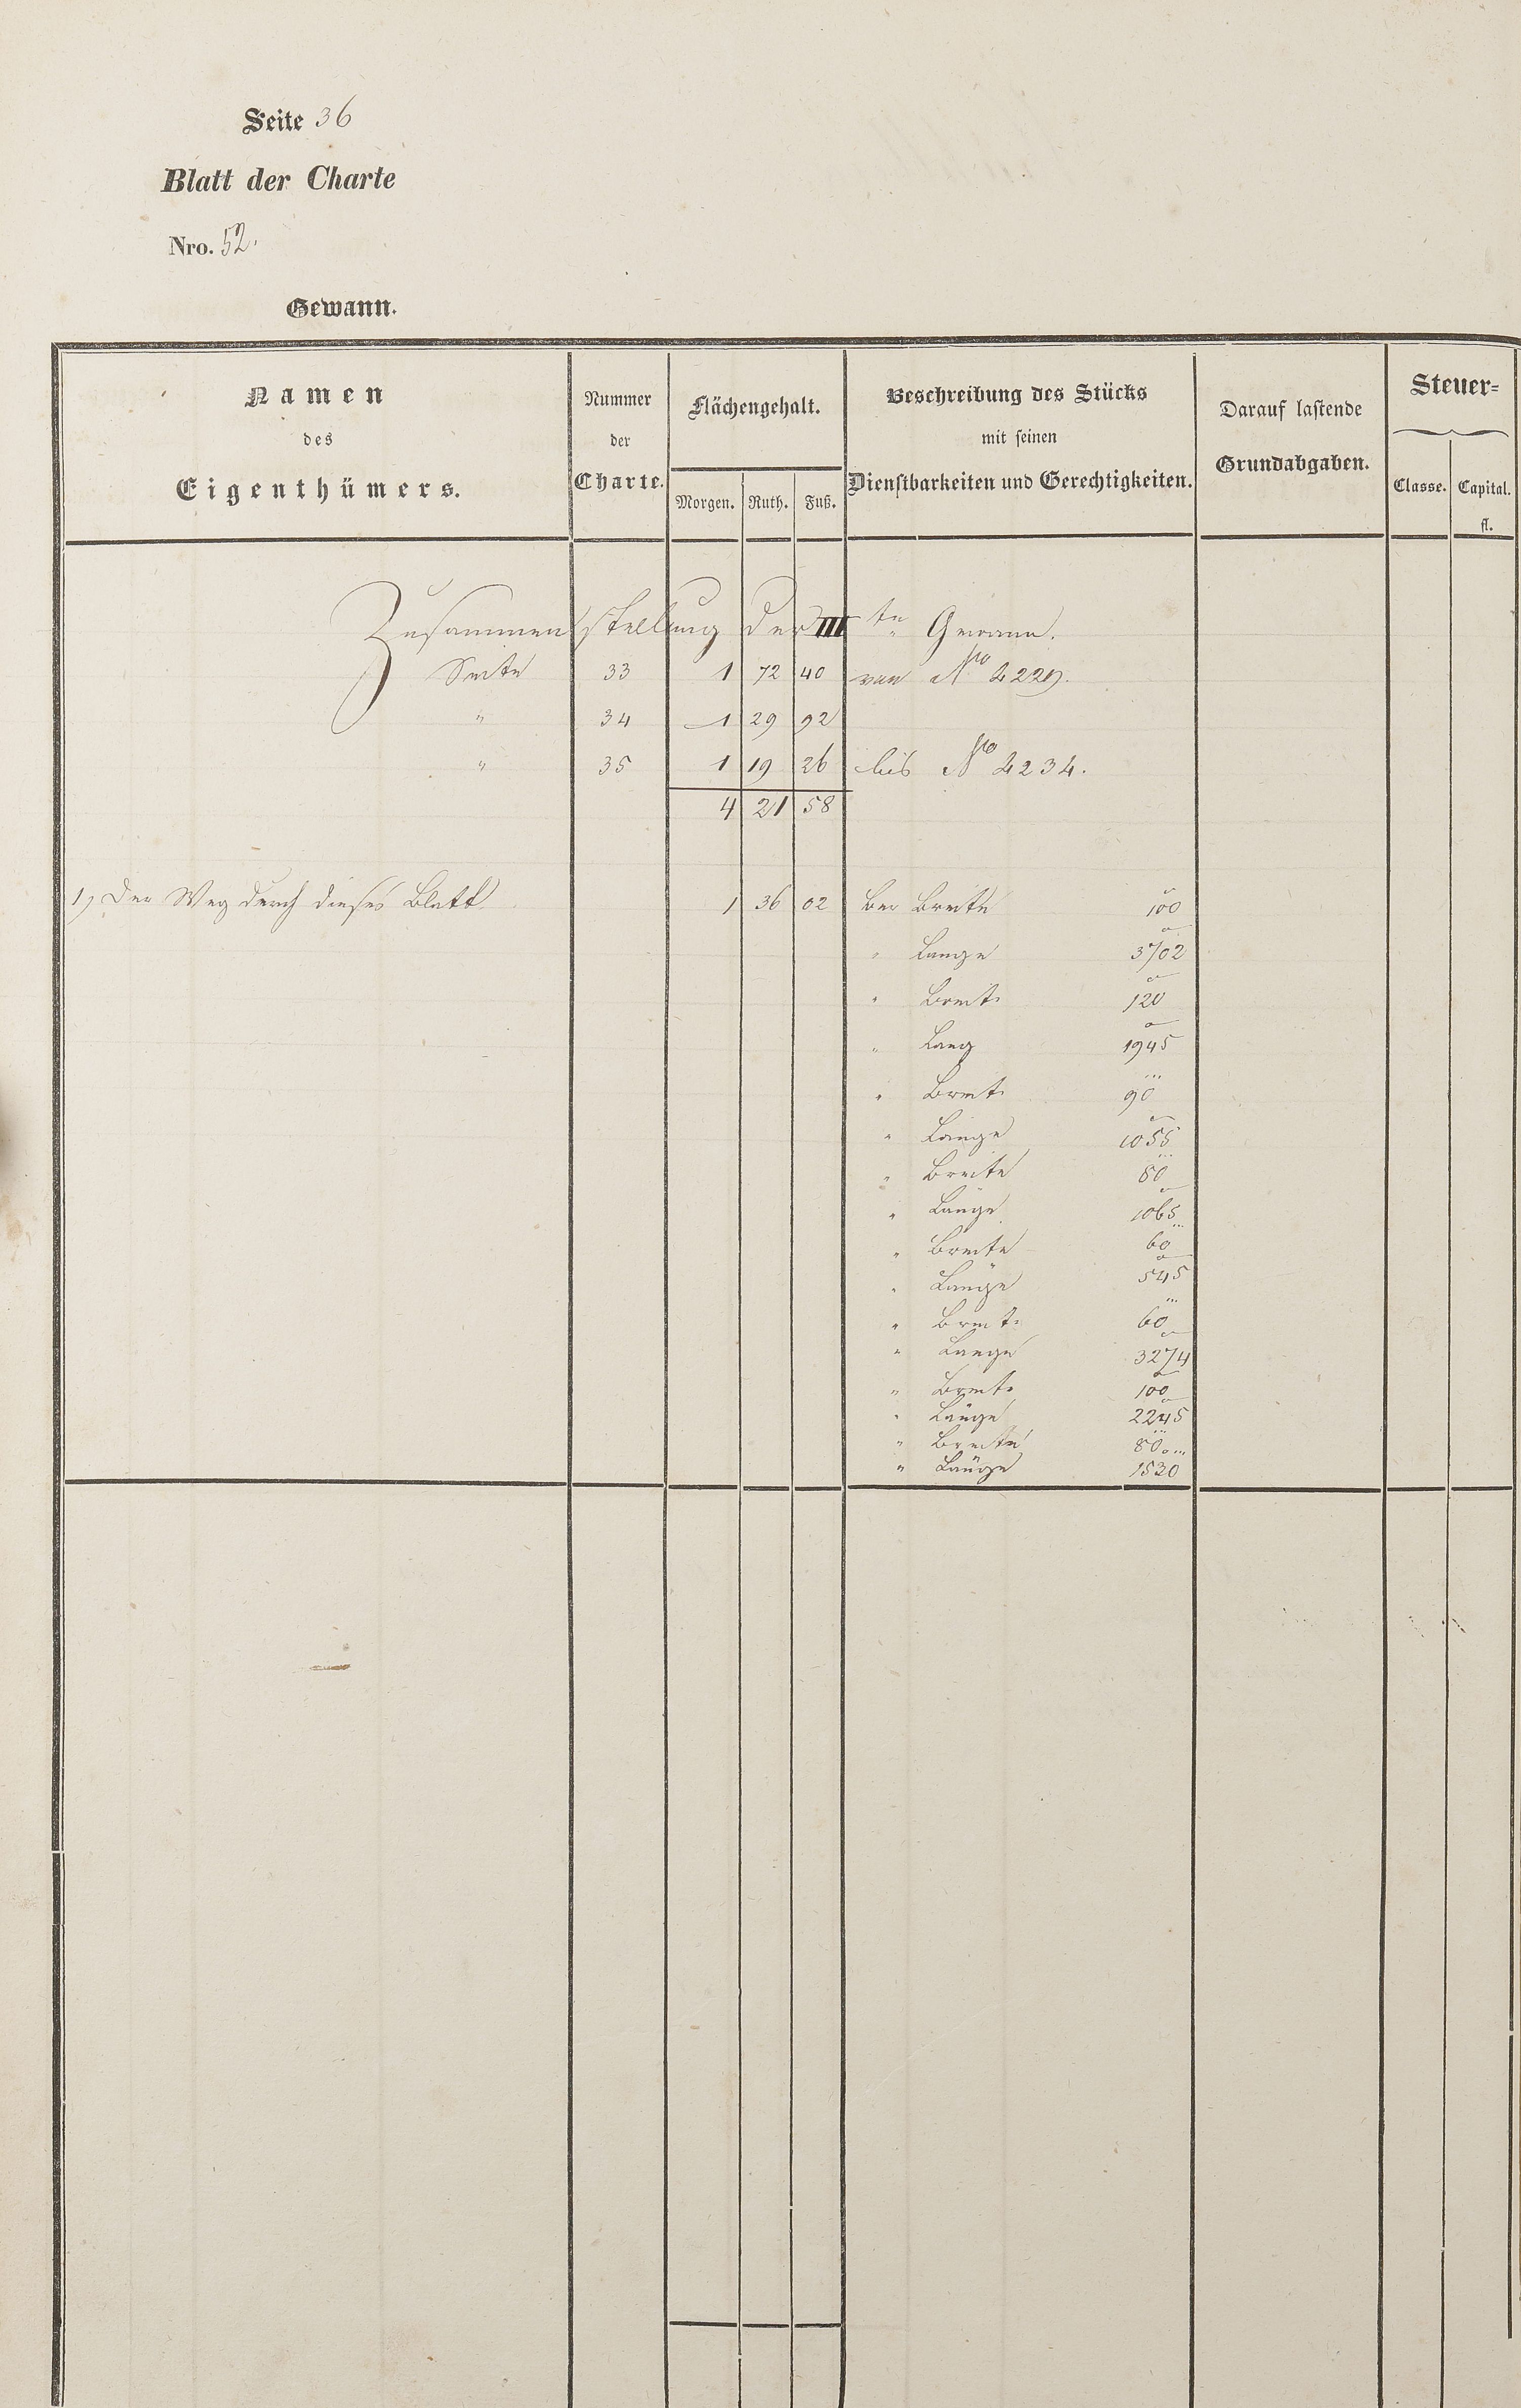 Seite 36
Blatt der Charte
Nro. 52.
Gewann.
Namen des Eigenthümers.
Nummer der Charte.
Flächengehalt.
Morgen. Ruth. Fuß.
Beschreibung des Stücks mit seinen Dienstbarkeiten und Gerechtigkeiten.
Darauf lastende Grundabgaben.
Steuer-
Classe. Capital. fl.
Zusammenstellung der III te Gewann.
Seite 33 1 72 40 von No 4229.
" 34 1 29 92
" 35 1 19 26 bis No 4234.
4 21 58
1, Der Weg durch dieses Blatt 1 36 02 Bei Breite 100
" Länge 3702
" Breite 120
" Lang 1945
" Breite 90
" Länge 1055
" Breite 80
" Länge 1065
" Breite 60
" Länge 545
" Breite 60
" Länge 3274
" Breite 100
" Länge 2245
" Breite 80
" Länge 1520